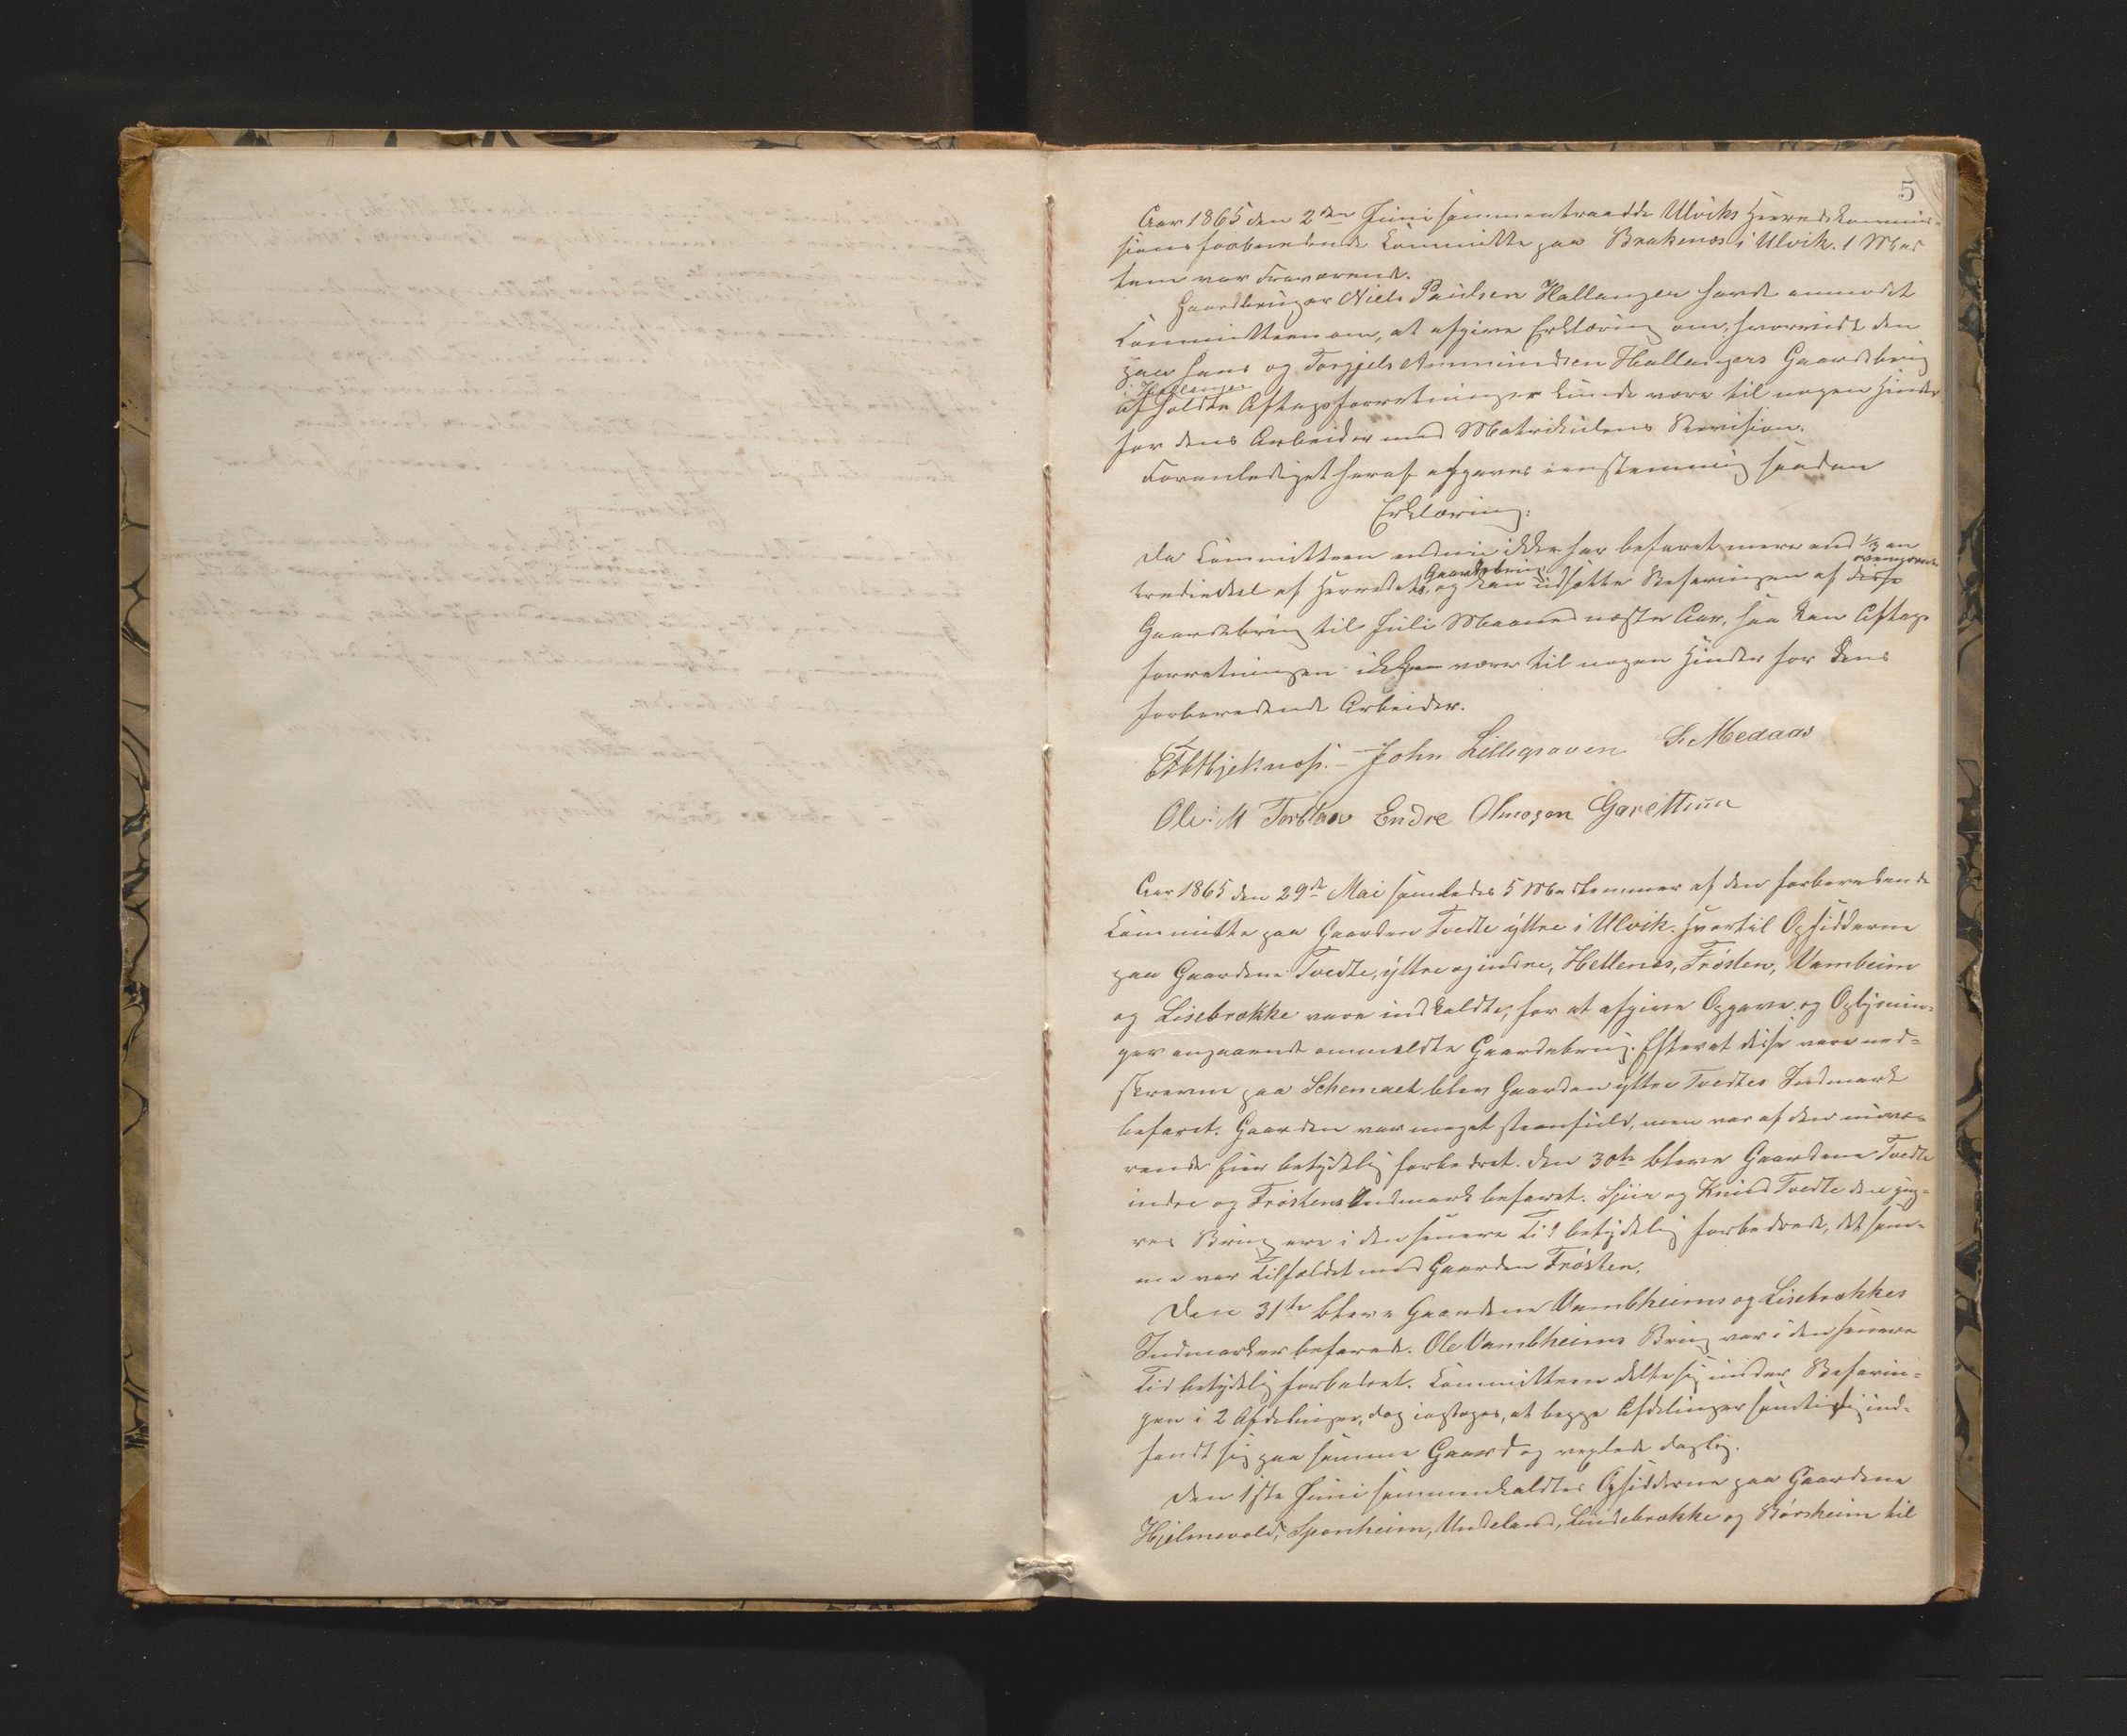 5
Aar 1865 den 2den Juni sammentraadte Ulviks Herredskommis-
sions forberedende Committe paa Brakenæs i Ulvik. 1 Med
lem var fraværende.
Gaardbruger Niels Paulsen Hallanger havde anmodet
Committeen om, at afgive Erklæring om, hvorvidt den
paa hans og Torgjels Ammundsen Hallangers Gaardsbrug
i Hallanger
afholdte Aftagsforretninger kunde være til nogen Hinder
for dens Arbeider med Matrikulens Revision.
Foranlediget heraf afgaves eenstemmig saadan
Erklæring:
Da Committeen endnu ikke har befaret mere end 1/3 en
Gaardebrug ovennævnte
trediedel af Herredets, og kan udsætte Befaringen af disse
Gaardebrug til Juli Maaned næste Aar, saa kan Aftags
forretningen ikke være til nogen Hinder for dens
forberedende Arbeider.
Hjeltnæs. – John Lillegraven S. Medaas
Ole: M Torblaa Endre Olmosen Garetun
Aar 1865 den 29de Mai samledes 5 Medlemmer af den forberedende
Committe paa Gaarden Tvedte ÿttre i Ulvik. Hvortil Opsidderne
paa Gaardene Tvedte, ÿttre og indre, Hellenes, Frøsten, Vambeim
og Lisebrække vare indkaldte, for at afgive Opgave og Oplysnin-
ger angaaende anmeldte Gaardebrug. Efterat disse vare ned-
skrevne paa Schemaet blev Gaarden ÿttre Tvedtes Indmark
befaret. Gaarden var meget steenfuld, men var af den nuvæ-
rende Eier betydelig forbedret. Den 30te bleve Gaardene Tvedte
indre og Frøstens Indmark befaret. Siur og Knud Tvedte den yng-
res Brug ere i den senere Tid betydelig forbedrede, det sam-
me var Tilfældet med Gaarden Frøsten.
Den 31te bleve Gaardene Vambheims og Lisebrækkes
Indmarker befarede. Ole Vambheims Brug var i den senere
Tid betydelig forbedret. Committeen delte sig under Befarin-
gen i 2 Afdelinger, dog iagtoges, at begge Afdelinger samtidig ind-
fandt sig paa samme Gaard og vexlede daglig.
Den 1ste Juni sammenkaldtes Opsidderne paa Gaardene
Hjelmevold, Sponheim, Undeland, Lindebrække og Børsheim til